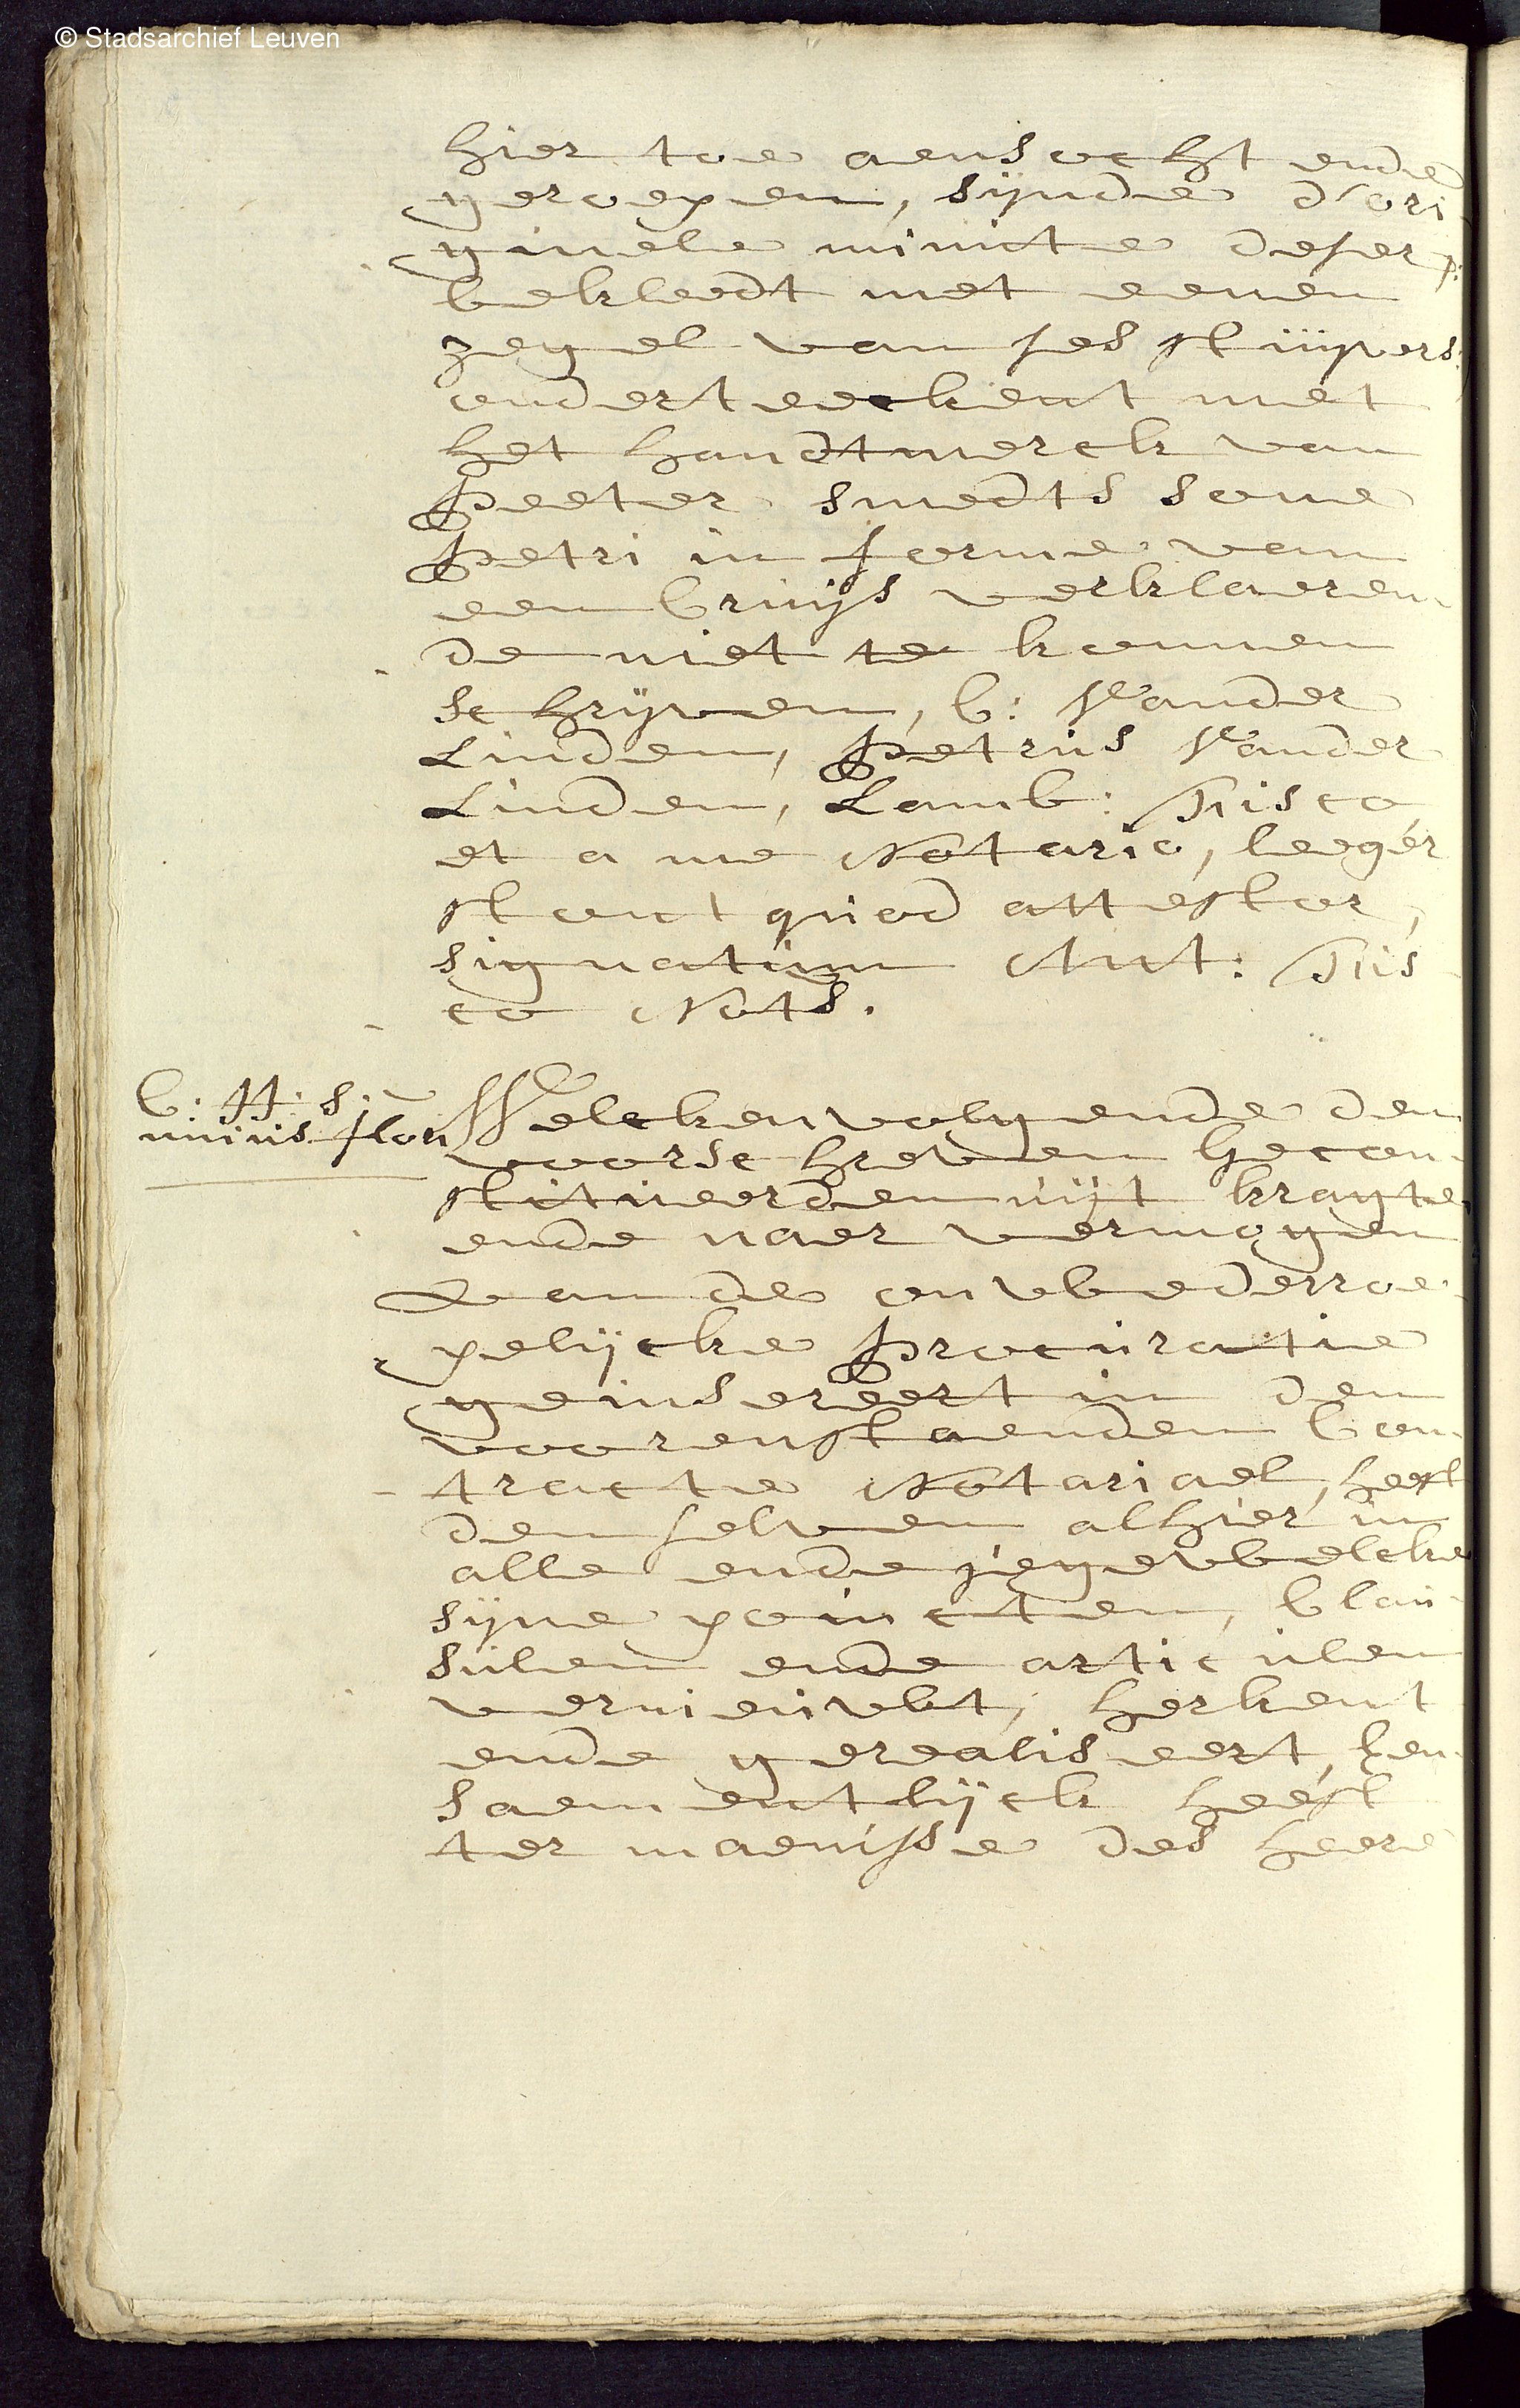 © Stadsarchief Leuven
hier toe aensocht ende
geroepen, sijnde d'ori
ginele minute deser
bekleedt met eenen
zegel van ses stuijvers
onderteeckent met
het handtmerck van
Peeter Smedts sone
Petri in forme van
een Cruijs verklaeren
de niet te konnen
schrijven, C: Vander
Linden, Petrus Vander
Linden, Lamb: Tisco
et a me Notario, leeger
stont quod attestor,
signatum Ant: Tis
co Nots.
C: H: S:
unius flori
Welcken volgende den
voorschreven Gecon
stitueerden uijt kragte
ende naer vermogen
van de onwederroe
pelijcke Procuratie
geinsereert in den
voorenstaenden Con
tracte Notariael, heeft
den selven alhier in
alle ende jegewelcke
sijne poincten, Clau
sulen ende articulen
vernieuwt, herkent
ende gerealiseert, ken
saementlijck heeft
ter maenisse des heere